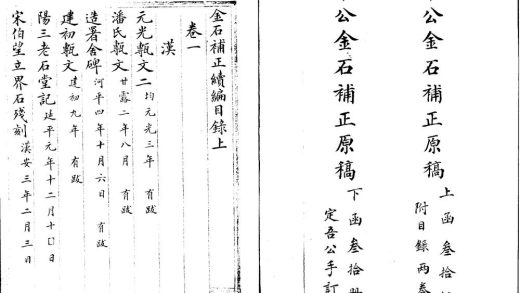 公金石補正原稿 上函叁拾
附目錄兩叁
公金石補正原稿 下函叁拾册
定吾公手訂
金石補正續編目錄上
卷一
漢
元光甎文二 均元光三年 有跋
潘氏甎文 甘露二年八月 有跋
造署舍碑 河平四年十月六日 有跋
建初甎文 建初九年 有跋
陽三老石堂記 延平元年十二月十〇日
宋伯望立界石殘刻 漢安三年二月三日